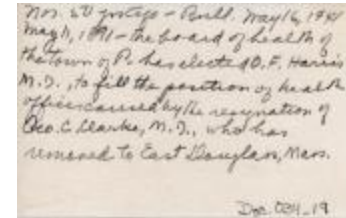 May 16, 1891
May 11, 1891 - the board of health of
the town of P. has elected O. F. Harris
M.D., to fill the position of health
officer caused by the resignation of
Geo. C. Clarke, M.D., who has
removed to East Douglas, Mass.
Doc. 024_19